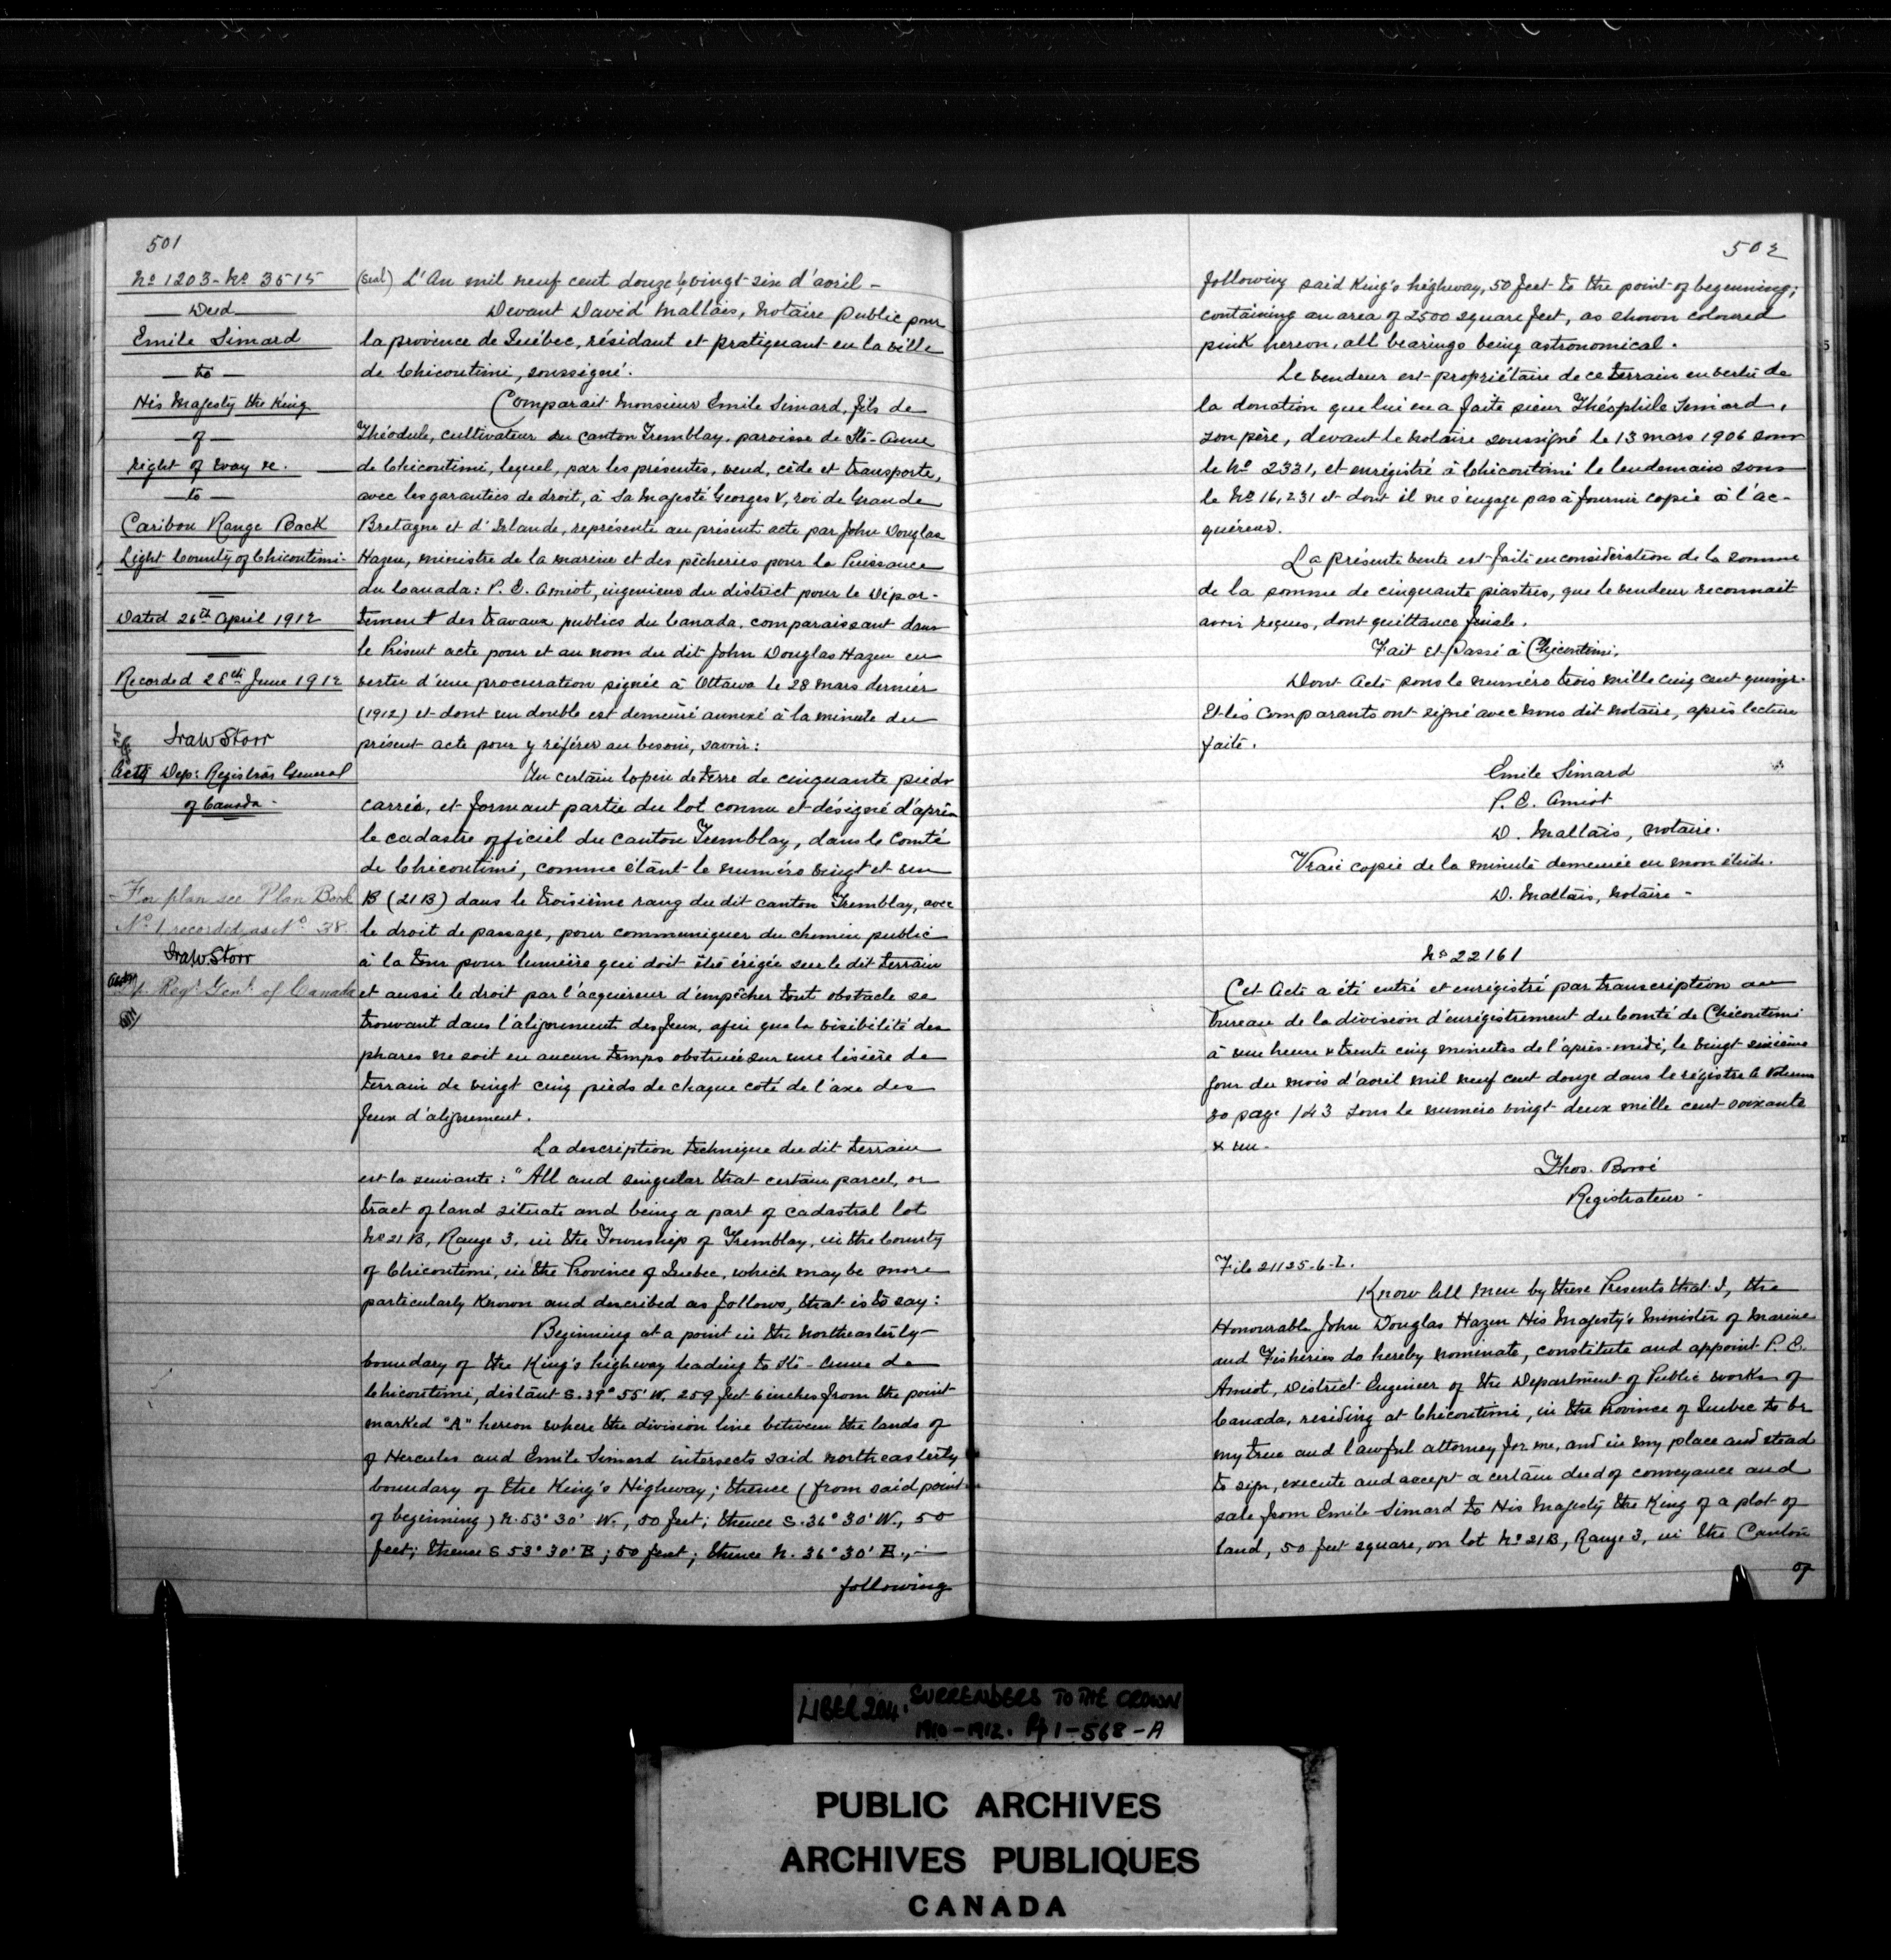 501
No 1203 - No 3515
Deed
Emile Simard
to
His Majesty the King
of
right of way &c.
to
Caribou Range Back
Light County of Chicoutimi -
Dated 26th April 1912
Recorded 28th June 1912
Ira W Storr
Actg Dep: Registrar General
of Canada -
For plan see Plan Book
No 1 recorded as No 38.
Ira W. Storr
Actg
Dp. Regr. Genl. of Canada
(Seal) L'An mil neuf cent douze le vingt-six d'avril -
Devant David Maltais, Notaire Public pour
la province de Québec, résidant et pratiquant en la ville
de Chicoutimi, soussigné.
Comparait Monsieur Emile Simard, fils de
Théodule, cultivateur du canton Tremblay, paroisse de Ste-Anne
de Chicoutimi, lequel, par les présentes, vend, cède et transporte,
avec les garanties de droit, à Sa Majesté Georges V, roi de Grande
Bretagne et d'Irlande, représenté au présent acte par John Douglas
Hazen, ministre de la marine et des pêcheries pour la Puissance
du Canada: P. E. Amiot, ingenieur du district pour le Dépar-
tement des travaux publics du Canada, comparaissant dans
le Présent acte pour et au nom du dit John Douglas Hazen en
vertu d'une procuration signée à Ottawa le 28 mars dernier
(1912) et dont un double est demeuré annexé à la minute du
présent acte pour y référer au besoin, savoir:
Un certain lopin de terre de cinquante pieds
carrés, et formant partie du lot connu et désigné d'après
le cadastre officiel du canton Tremblay, dans le Comté
de Chicoutimi, comme étant le numéro vingt et un
B (21 B) dans le troisième rang du dit canton Tremblay, avec
le droit de passage, pour communiquer du chemin public
à la tour pour lumière qui doit être érigée sur le dit terrain
et aussi le droit par l'acquéreur d'empêcher tout obstacle se
trouvant dans l'alignement des feux, afin que la visibilité des
phares ne soit en aucun temps obstruée sur une lisière de
terrain de vingt cinq pieds de chaque coté de l'axe des
feux d'alignement.
La description technique du dit terrain
est la suivante: "All and singular that certain parcel, or
tract of land situate and being a part of cadastral lot
No 21 B, Range 3, in the Township of Tremblay, in the County
of Chicoutimi, in the Province of Quebec, which may be more
particularly known and described as follows, that is to say:
Beginning at a point in the Northeasterly -
boundary of the King's highway leading to Ste-Anne de
Chicoutimi, distant S. 39° 55' W. 259 feet 6 inches from the point
marked "A" hereon where the division line between the lands of
of Hercules and Emile Simard intersects said northeasterly
boundary of the King's Highway; thence (from said point
of beginning) N. 53° 30' W., 50 feet; thence S. 36° 30' W., 50
feet; thence S 53° 30' E; 50 feet; thence N. 36° 30' E., -
following
502
following said King's highway, 50 feet to the point of beginning;
containing an area of 2500 square feet, as shown coloured
pink hereon, all bearings being astronomical.
Le vendeur est propriétaire de ce terrain en vertu de
la donation que lui en a faite sieur Théophile Simard,
son père, devant le Notaire soussigné le 13 mars 1906 sous
le No 2331, et enrégistré à Chicoutimi le lendemain sous
le No 16,231 et dont il ne s'engage pas à fournir copie à l'ac-
quéreur.
La présente vente est faite en considération de la somme
de la somme de cinquante piastres, que le vendeur reconnait
avoir reçues, dont quittance finale.
Fait et Passé à Chicoutimi,
Dont Acte sous le numéro trois mille cinq cent quinze.
Et les Comparants ont signé avec nous dit notaire, après lecture
faite.
Emile Simard
P. E. Amiot
D. Maltais, notaire.
Vraie copie de la minute demeurée en mon étude.
D. Maltais, Notaire -
No 22161
Cet Acte a été entré et enrégistré par transcription au
bureau de la division d'enrégistrement du Comté de Chicoutimi
à une heure & trente cinq minutes de l'après-midi, le vingt-sixième
jour du mois d'avril mil neuf cent douze dans le régistre B Volume
30 page 143 sous le numéro vingt deux mille cent soixante
& un.
Thos.
Registrateur -
File 21125-6-L.
Know All Men by these Presents that I, the
Honourable John Douglas Hazen His Majesty's Minister of Marine
and Fisheries do hereby nominate, constitute and appoint P. E.
Amiot, District Engineer of the Department of Public Works of
Canada, residing at Chicoutimi, in the Province of Quebec to be
my true and lawful attorney for me, and in my place and stead
to sign, execute and accept a certain deed of conveyance and
sale from Emile Simard to His Majesty the King of a plot of
land, 50 feet square, on lot No 21B, Range 3, in the Canton
of
LIBER 204. SURRENDERS TO THE CROWN
1910-1912. Pp 1-568-A
PUBLIC ARCHIVES
ARCHIVES PUBLIQUES
CANADA